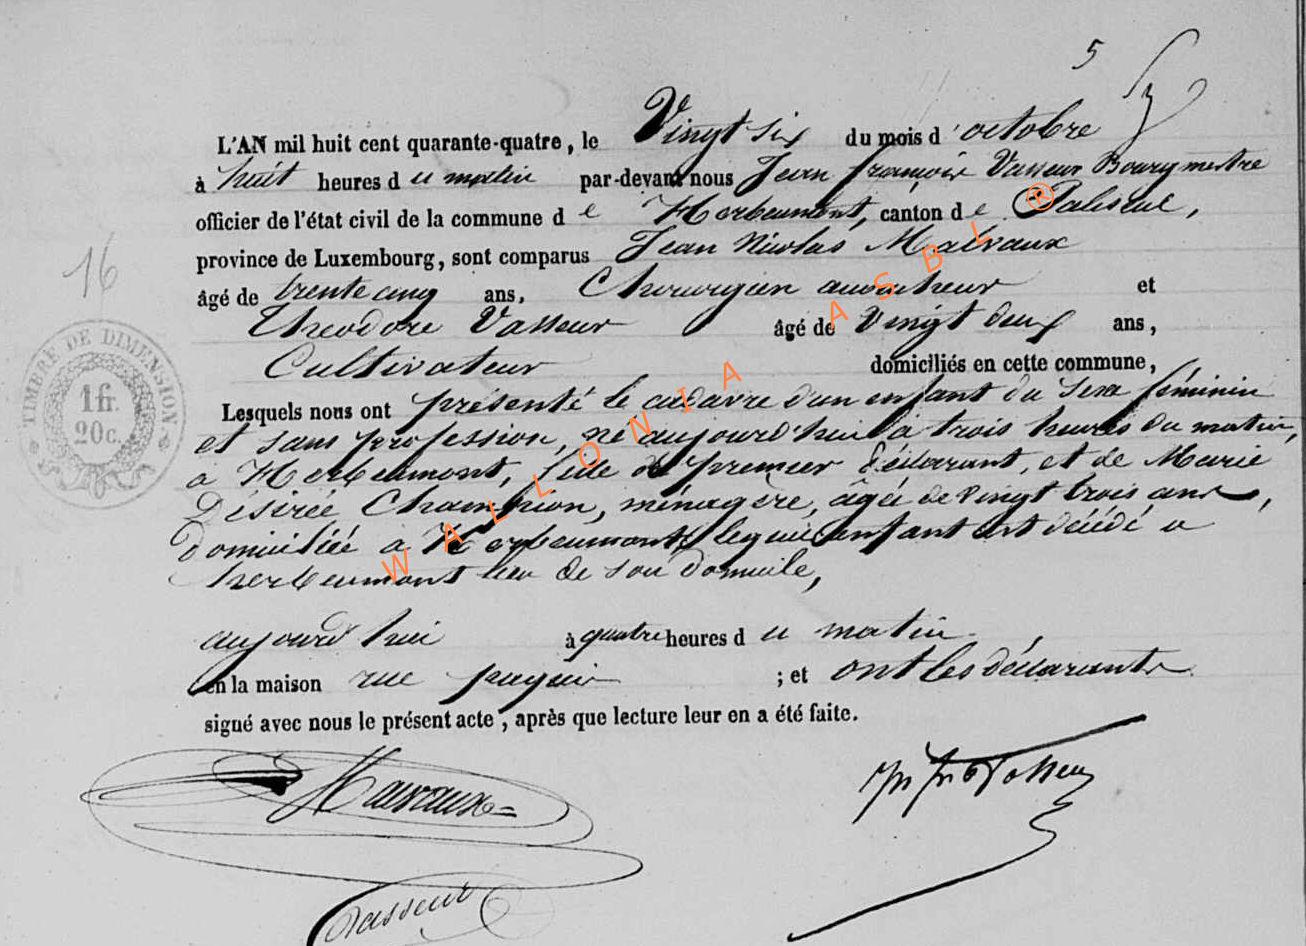 5
L'AN mil huit cent quarante-quatre, le Vingt six du mois d'octobre
à huit heures du matin par-devant nous Jean françois Vasseur Bourgmestre
officier de l'état civil de la commune de Herbeumont, canton de Paliseul,
province de Luxembourg, sont comparus Jean Nicolas Malvaux
âgé de trente cinq ans, Chirurgien accoucheur et
Théodore Vasseur âgé de Vingt deux ans,
Cultivateur domiciliés en cette commune,
Lesquels nous ont présenté le cadavre d'un enfant du Sexe féminin
et sans profession, né aujourd'hui à trois heures du matin,
à Herbeumont, fille du premier déclarant, et de Marie
Désirée Champion, ménagère, âgée de Vingt trois ans,
domiciliée à Herbeumont, lequel enfant est décédé a
herbeumont lieu de son domicile,
aujourd'hui à quatre heures du matin
en la maison rue ; et ont les déclarants
signé avec nous le présent acte, après que lecture leur en a été faite.
16
TIMBRE DE DIMENSION
1 fr.
20 c.
WALLONIA ASBL ®
Malvaux
Jn fs Vasseur
Vasseur